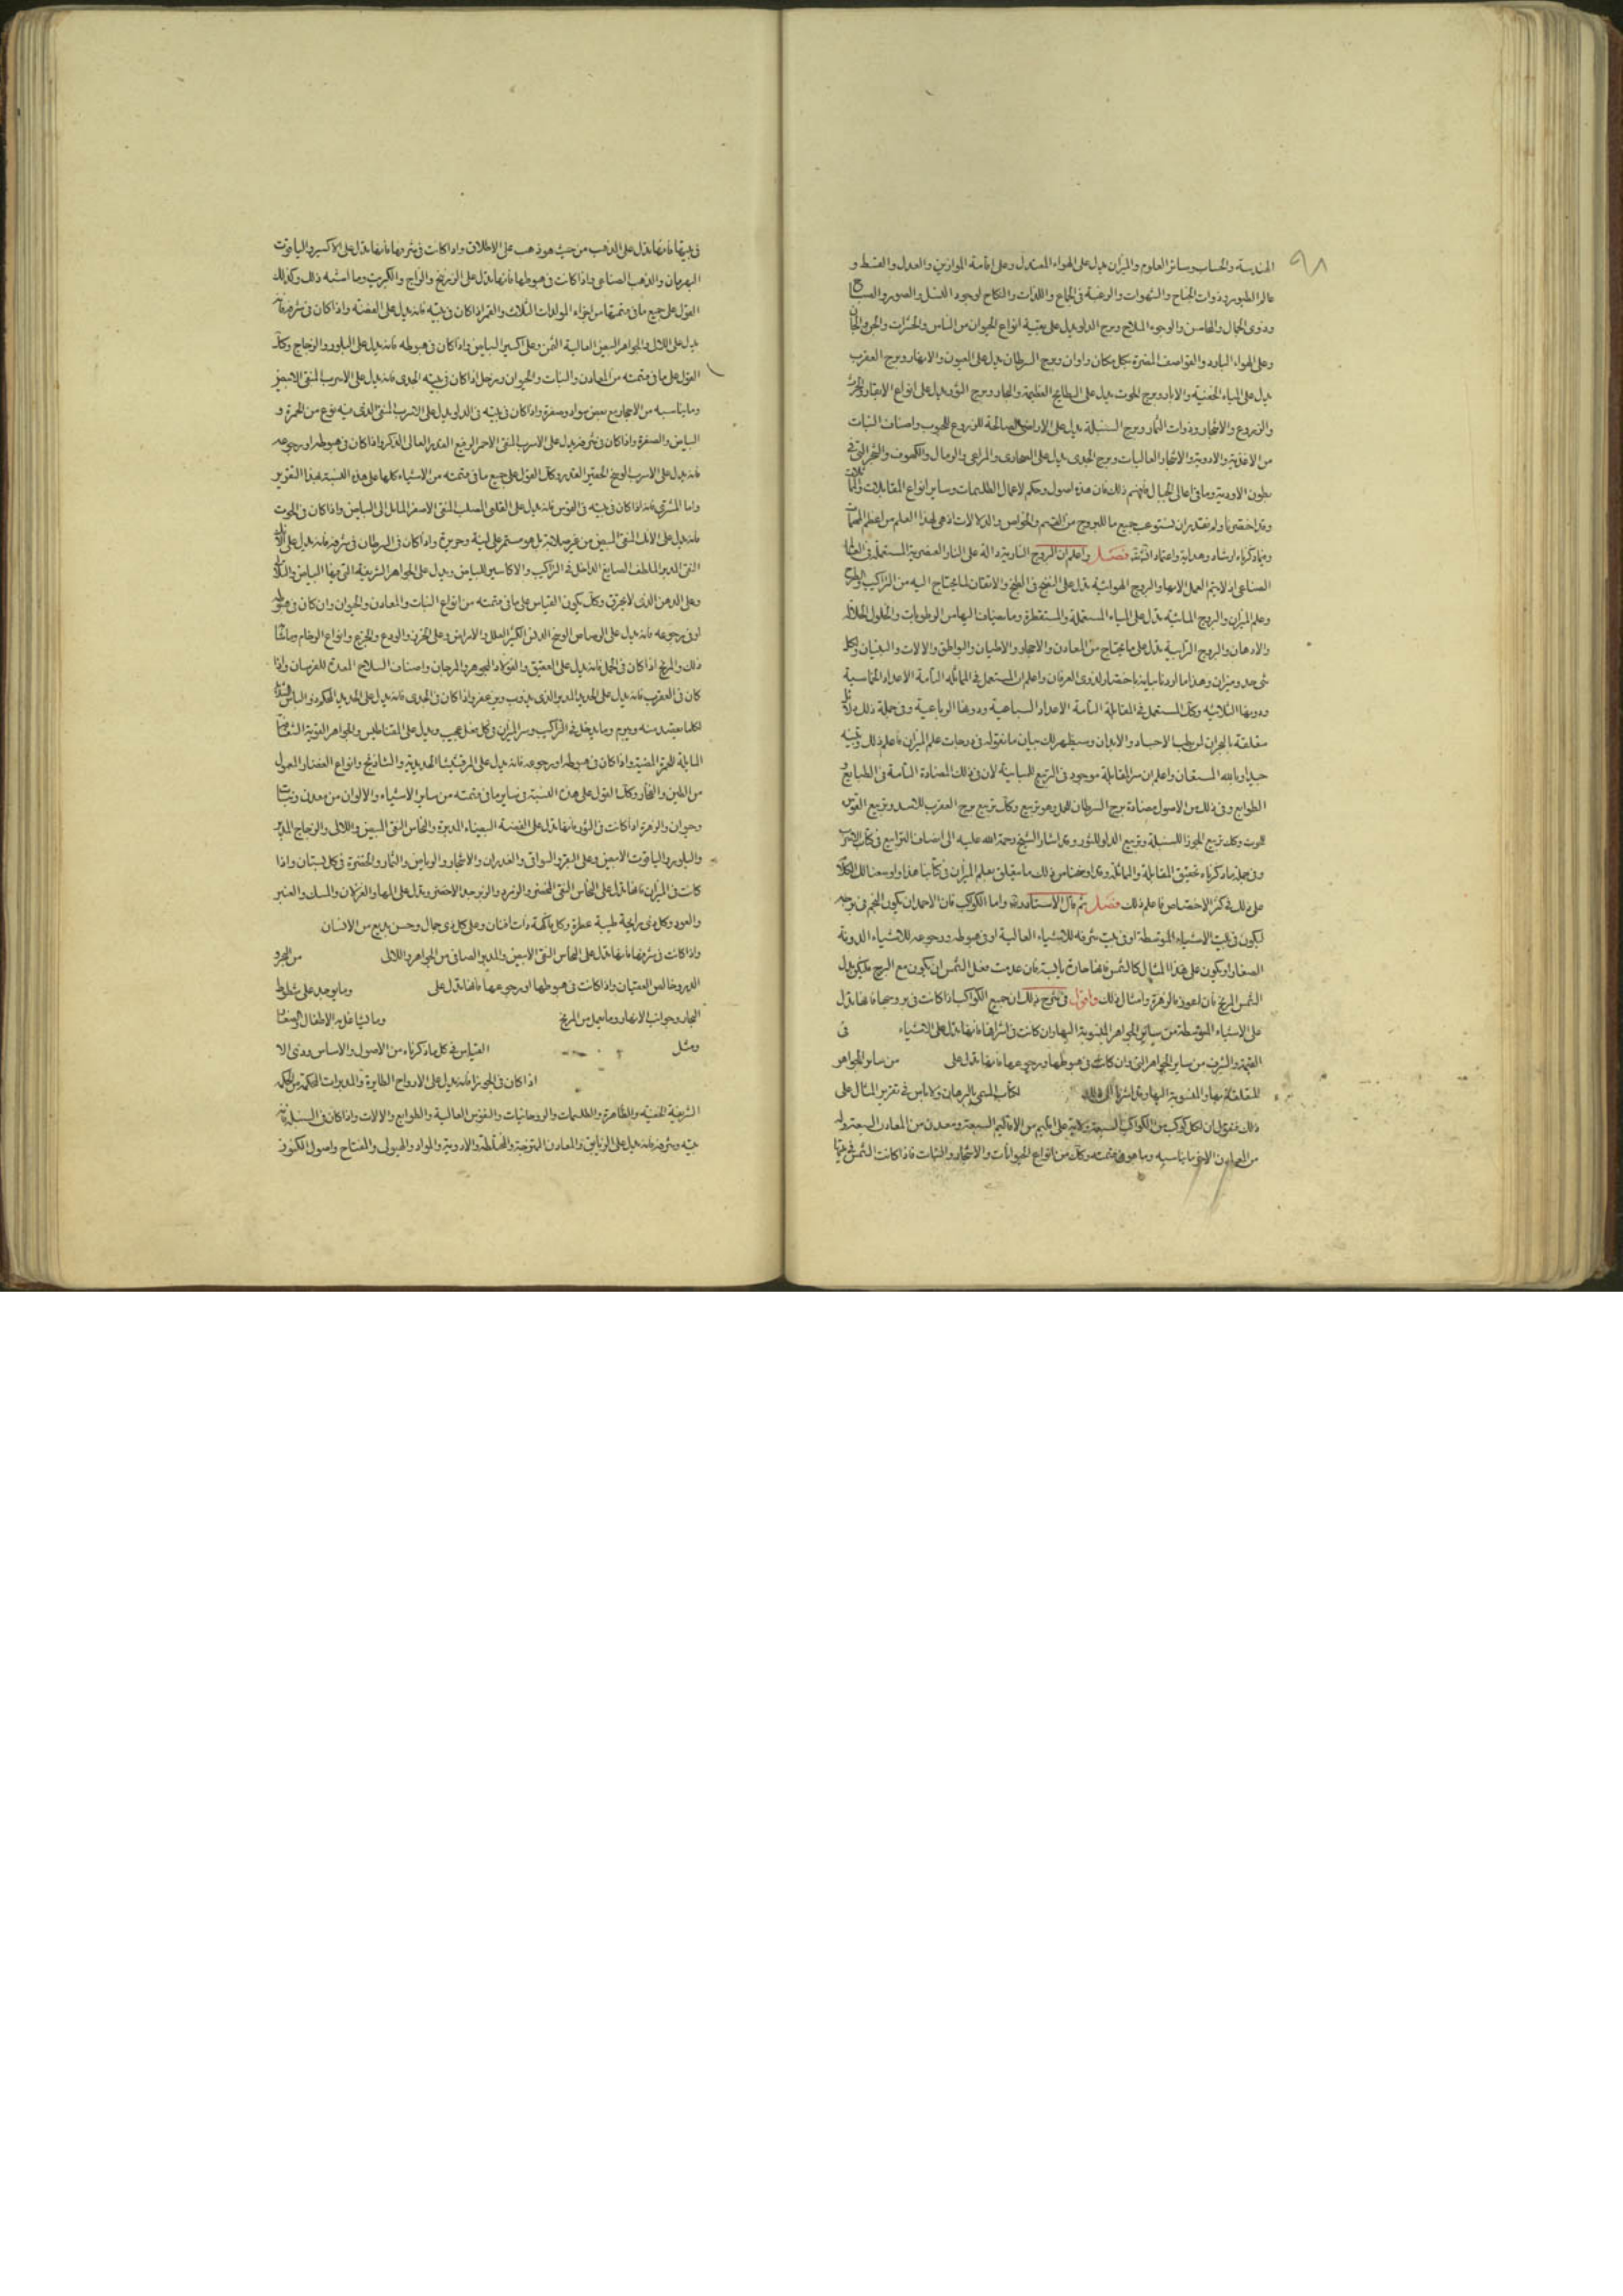 ٩٨
الهندسة والحساب وسائر العلوم والميزان يدل على الهواء المعتدل وعلى اقامة الموازين والعدل والقسط و
عالم الطيور وذوات الجناح والشهوات والرغبة فى الجماع واللذات والنكاح لوجود النسل والصور
وذوى الجمال والمحاسن والوجوه الملاح وبرج الدلو يدل على بقية انواع الحيوان من الناس والحشرات والجن
وعلى الهواء البارد والعواصف المضرة بكل مكان واوان وبرج السرطان يدل على العيون والانهار وبرج العقرب
يدل على المياه الخفية والابار وبرج الحوت يدل على البطايح العظيمة والبحار وبرج الثور يدل على انواع الابقار
والزروع والاشجار وذوات الثمار وبرج السنبلة يدل على الاراضى الصالحة للزروع للحبوب واصناف النبات
من الاغذية والادوية والاشجار العاليات وبرج الجدى يدل على الصحارى والمراعى والرمال والكهوف والشجر التى فى
بطون الاودية وما فى اعالى الجبال فافهم ذلك فان هذه اصول وحكم لاعمال الطلسمات وساير انواع المقابلات
وقد اختصرنا ولم نقدر ان نستوعب جميع ما للبروج من القسم والخواص والدلالات اذ هى لهذا العلم من اعظم المهمات
وفيما ذكرناه ارشاد وهداية واعتماد فصل واعلم ان البروج النارية دالة على النار العنصرية المستعملة فى
الصناعى اذ لا يتم العمل الا بها والبروج الهوائية تدل على النفخ فى الطبخ والاتقان لما يحتاج اليه من التراكيب
وعلم الميزان والبروج المائية تدل على المياه المستعملة والمستقطرة وما يضاف اليها من الرطوبات والحلول
والادهان والبروج الترابية تدل على ما يحتاج من المعادن والاحجار والاطيان والبوا طق والالات والبنيان ولكل
شى حد وميزان وهذا ما اردنا بيانه باختصار لذوى العرفان واعلم ان المستعمل فى المماثلة التامة الاعداد الخماسية
ودونها الثلاثية وكذلك المستعمل فى المقابلة التامة الاعداد السباعية ودونها الرباعية وفى جملة ذلك
متعلقة بالبحران لمن طب الاجساد والابدان وسيظهر لك بيان ما نقوله فى درجات علم الميزان فاعلم ذلك
جيدا وبالله المستعان واعلم ان سر المقابلة موجود فى التربيع للمباينة لان فى ذلك المضادة التامة فى الطبايع
الطوابع وفى ذلك من الاصول مضادة برج السرطان للحمل وهو تربيع وكذلك تربيع برج العقرب للاسد وتربيع القوس
للحوت وكذلك تربيع الجوزا للسنبلة وتربيع الدلو للثور وقد اشار الشيخ رحمة الله عليه الى انصاف الترابيع فى كتاب
وفى جملة ما ذكرناه تحقيق المقابلة والمماثلة وقد اوضحنا من ذلك ما يتعلق بعلم الميزان فى كتابنا هذا واوسعنا لك الكلام
على ذلك فى كنز الاختصاص فاعلم ذلك فصل ثم قال الاستاد واما الكواكب فان الاحمد ان يكون النجم فى برجه
ليكون فى بيت الاشياء المتوسطة او فى بيت شرفه للاشياء العالية او فى هبوطه ورجوعه للاشياء الدونة
الصغار او يكون على هذا المثال كالشمس فانها حارة يابسة فان عدمت فعل الشمس ان يكون مع البرج فليكن بدل
الشمس المريخ فان اعوز فالزهرة وامثال ذلك واقول فى شرح ذلك ان جميع الكواكب اذا كانت فى بروجها فانها تدل
على الاشياء المتوسطة من ساير الجواهر المنسوبة اليها وان كانت فى اشرافها فانها تدل على الاشياء فى
القيمة والشرف من ساير الجواهر وان كانت فى هبوطها ورجوعها فانها تدل على من ساير الجواهر
المتعلقة بها والمنسوبة اليها لكتاب المسمى بالبرهان ولا باس فى تقرير المثال على
ذلك فنقول ان لكل كوكب من الكواكب السبعة ولاية على اقليم من الاقاليم السبعة ومعدن من المعادن السبعة وله
من المعادن ما يناسبه وما هو فى قسمته وكذلك من انواع الحيوانات والاشجار والنبات فاذا كانت الشمس
فى بيتها فانها تدل على الذهب من حيث هو ذهب على الاطلاق واذا كانت فى شرفها فانها تدل على الاكسير والياقوت
البهرمان والذهب الصناعى واذا كانت فى هبوطها فانها تدل على الزرنيخ والزاج والكبريت وما اشبه ذلك وكذلك
القول على جميع ما فى قسمتها من اجزاء المولدات الثلاث والقمر اذا كان فى بيته فانه يدل على الفضة واذا كان فى شرفه فانه
يدل على اللالى والجواهر البيض العالية الثمن وعلى اكسير البياض واذا كان فى هبوطه فانه يدل على البلور والزجاج وكذلك
القول على ما فى قسمته من المعادن والنبات والحيوان وزحل اذا كان فى بيته الجدى فانه يدل على الاسرب المنقى الابيض
وما يناسبه من الاحجار مع بعض سواد وصفرة واذا كان فى بيته فى الدلو يدل على الاسرب المنقى الذى فيه نوع من الحمرة و
البياض والصفرة واذا كان فى شرفه يدل على الاسرب المنقى الاحمر الرفيع القدر العالى الذكر واذا كان فى هبوطه او رجوعه
فانه يدل على الاسرب الوسخ الحقير القدر وكذلك القول على جميع ما فى قسمته من الاشياء كلها على هذه النسبة بهذا التقرير
واما المشترى فانه اذا كان فى بيته فى القوس فانه يدل على القلعى الصلب المنقى الاصفر المايل الى البياض واذا كان فى الحوت
فانه يدل على الانك المنقى المبيض من غير صلابة بل هو مستمر على لينة واذا كان فى السرطان فى شرفه فانه يدل على
النقى المدبر الملطف الصابغ الداخل فى التراكيب والاكاسير للبياض ويدل على الجواهر الشريفة التى فيها البياض
وعلى الدهن الذى لا يحرق وكذلك يكون القياس على ما فى قسمته من انواع النبات والمعادن والحيوان وان كان فى هبوطه
او فى رجوعه فانه يدل على الرصاص الوسخ الدنى الكثير العلل والامراض وعلى الخرز والودع والجزع وانواع الرخام
ذلك والمريخ اذا كان فى الحمل فانه يدل على العقيق والفولاد المجوهر والمرجان واصناف السلاح المعدة للفرسان واذا
كان فى العقرب فانه يدل على الحديد المدبر الذى يذوب واذا كان فى الجدى فانه يدل على الحديد
لكلما يقصد منه ويروم وما يدخل فى التراكيب وسر الميزان فى كل فعل عجيب ويدل على المغناطيس والجواهر القوية
المايلة للحمرة المضية واذا كان فى هبوطه او رجوعه فانه يدل على المرقشيشا الحديدية والشاذنج وانواع الغضار المعمول
من الطين والفخار وكذلك القول على هذه النسبة فى ساير ما فى قسمته من ساير الاشياء والالوان من معدن ونبات
وحيوان والزهرة اذا كانت فى الثور فانها تدل على الفضة البيضاء المدبرة والنحاس النقى المبيض واللالى والزجاج المدبر
والبلور والياقوت الابيض وعلى السواقى والغدران والاشجار والرياض والثمار والخضرة فى كل بستان واذا
كانت فى الميزان فانها تدل على النحاس النقى المحض والزمرد والزبرجد الاخضر وتدل على المها والغزلان والمسك والعنبر
والعود وكل ذى رايحة طيبة عطرة وكل فاكهة ذات افنان وعلى كل ذى جمال وحسن بديع من الانسان
واذا كانت فى شرفها فانها تدل على النحاس النقى الابيض والمدبر الصافى من الجواهر واللالى من البحر و
الدر وخالص العقيان واذا كانت فى هبوطها او رجوعها فانها تدل على وما يوجد على شطوط
البحار وجوانب الانهار وما يعمل من المريخ وما يتشاغل به الاطفال
ومثل القياس فى كل ما ذكرناه من الاصول والاساس وذى الا
اذا كان فى الجوزا فانه يدل على الارواح الطايرة والمدبرات المحكمة من الحكمة
الشرعية الخفية والظاهرة والطلسمات والروحانيات والنفوس العالية والطوابع والالات واذا كان فى السنبلة فانه
بيته وشرفه فانه يدل على الزيابق والمعادن الممتزجة والمختلطة والادوية والمواد والهيولى والمفتاح واصول الكنوز